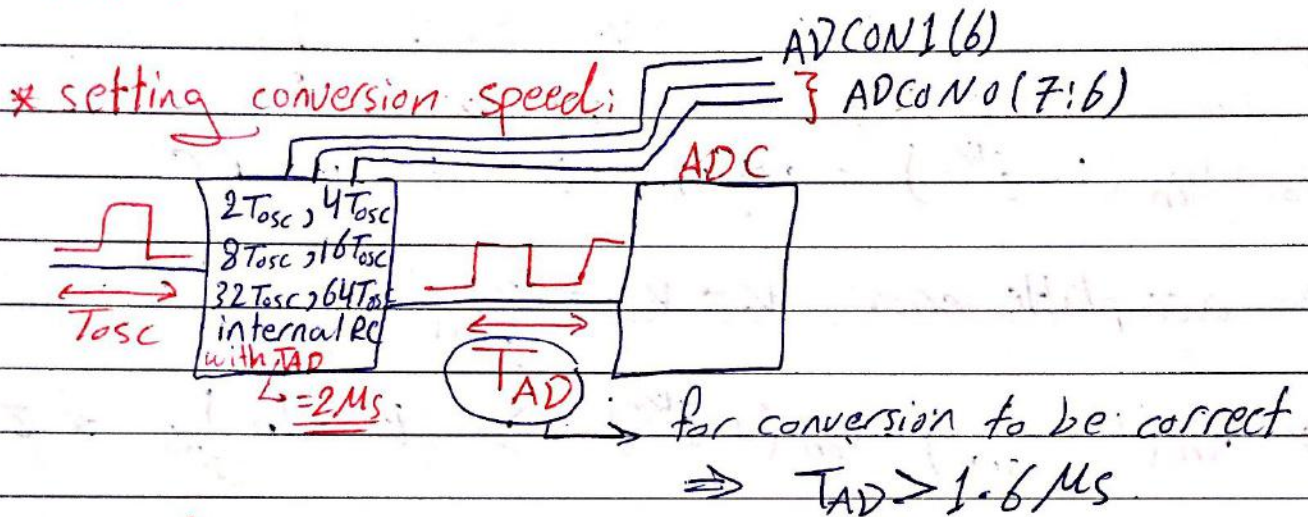 ADCON1(6)
* setting conversion speed: } ADCON0(7:6)
ADC
2Tosc, 4Tosc
8Tosc, 16Tosc
32Tosc, 64Tosc
internal RC
with TAD
↳ = 2Ms
Tosc
TAD
→ for conversion to be correct
⇒ TAD > 1.6 Ms